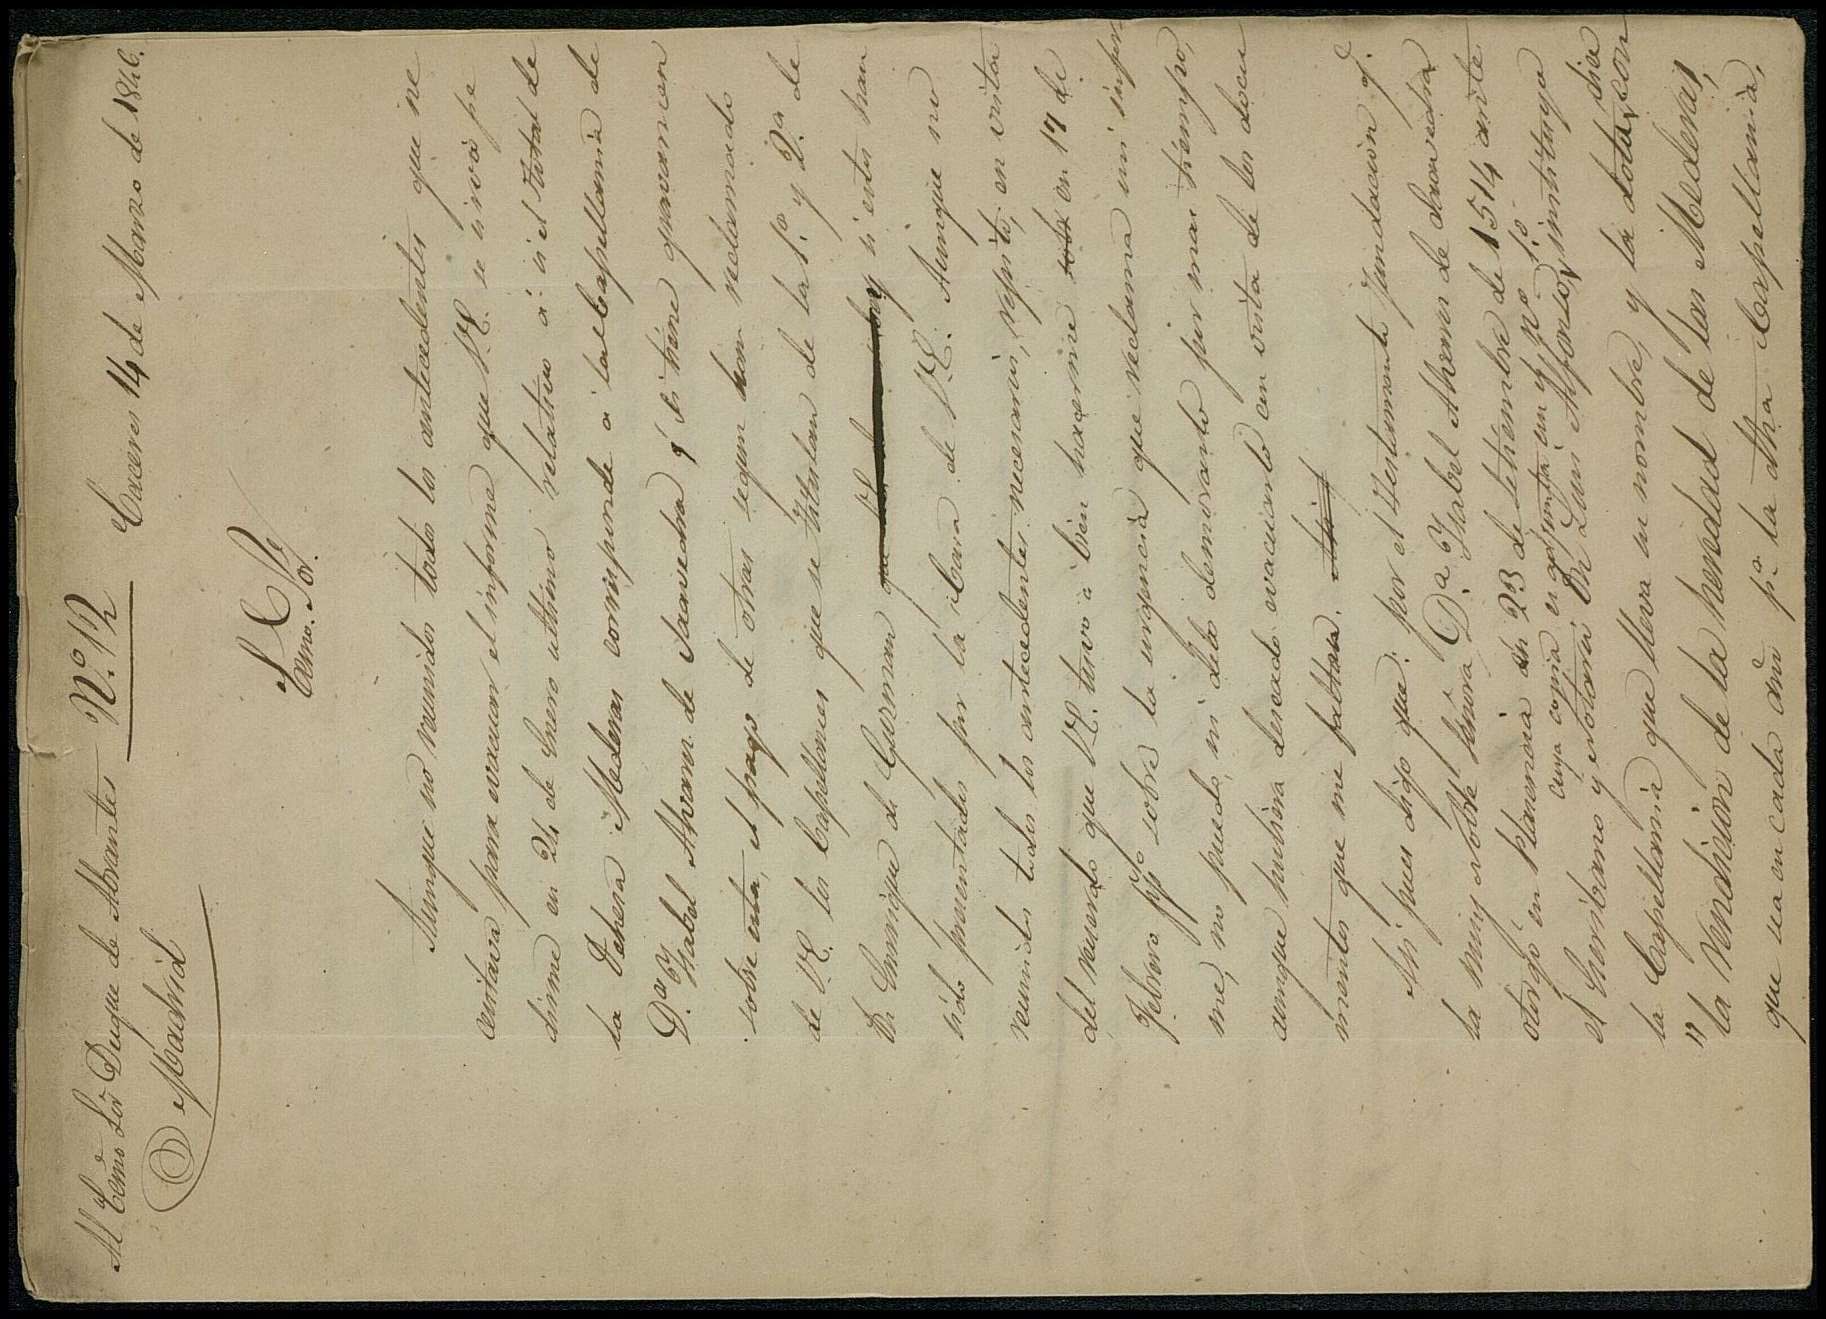 Al Excmo Sor Duque de Abrantes Nº. 12 Caceres 14 de Marzo de 1846.
Madrid
Excmo. Sor.
Aunque no reunidos todos los antecedentes que ne
cesitaria para evacuar el informe que V.E. se sirvió pe
dirme en 24 de Enero ultimo relativo á si el total de
la Dehesa Mederas corresponde á la Capellania de
Dª. Ysabel Alvarez de Saavedra ó si tiene gravamen
sobre esta, el pago de otras segun han reclamado
de V.E. los Capellanes que se titulan de la 1ª. y 2ª. de
D. Enrique de Guzman y si estos han
sido presentados por la casa de V.E. Aunque no
reunidos todos los antecedentes necesarios, repito, en vista
del recuerdo que V.E. tuvo á bien hacerme en 17 de
Febrero ppº sobre la urgencia que reclama mi infor
me, no puedo, ni debo demorarlo por mas tiempo,
aunque hubiera deseado evacuarlo con vista de los docu
mentos que me faltan.
Asi pues digo que: por el Testamento fundacion q.
la muy noble señora Dª. Ysabel Alvarez de Saavedra
otorgó en Plasencia en 23 de Setiembre de 1514 ante
cuya copia es adjunta con el nº 1º.
el Escribano y Notario D. Luis Alfonso, instituyo
la Capellania que lleva su nombre, y la dota, dice con
"la Rendicion de la heredad de las Mederas,
que sea en cada año pª. la dha Capellania,